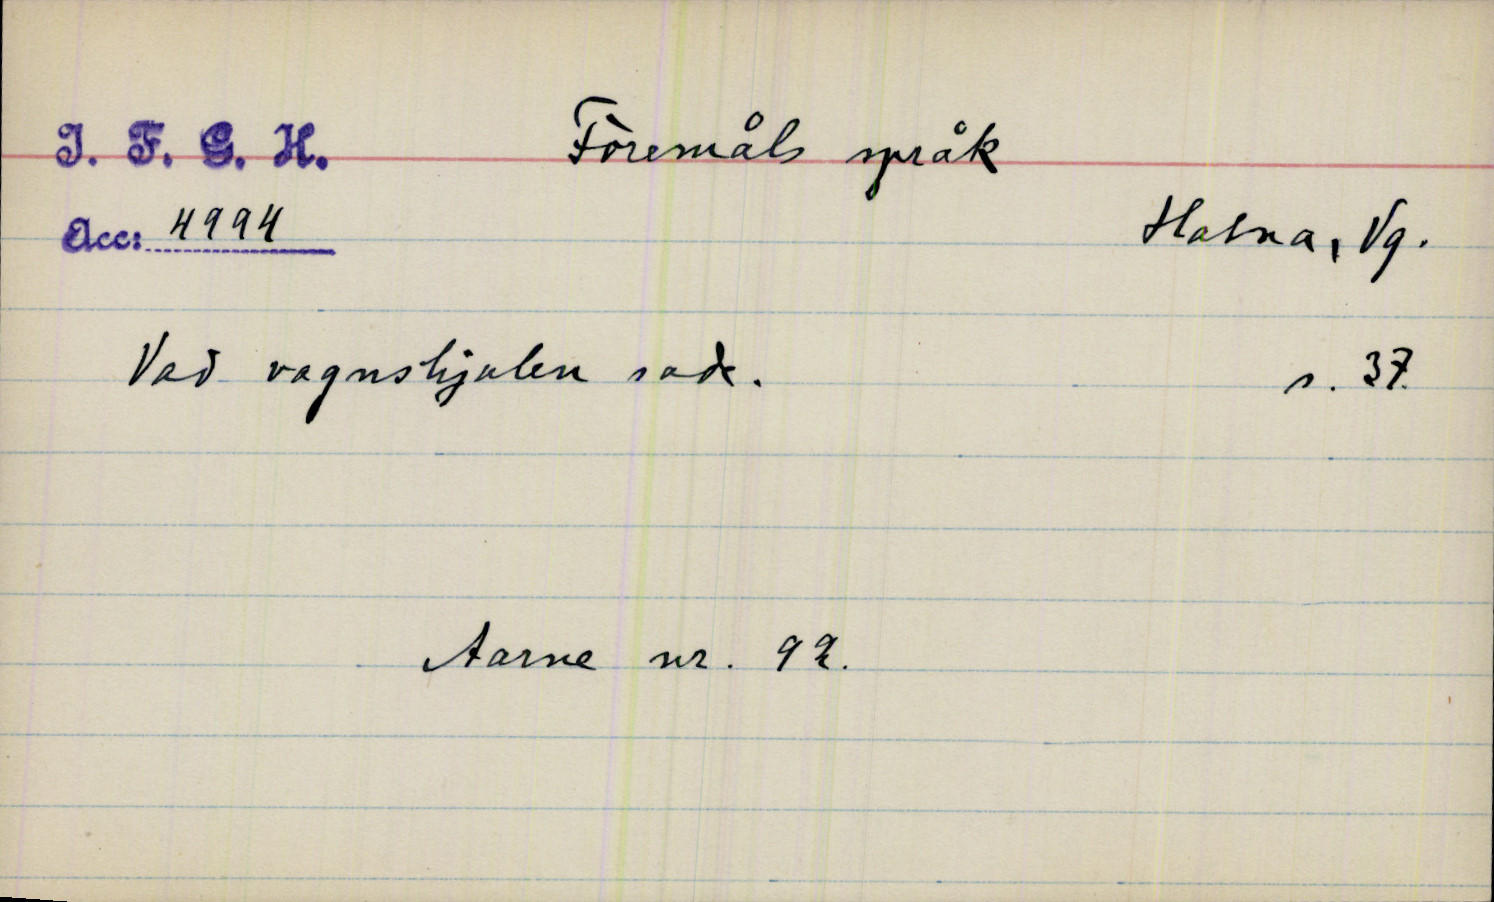 I. F. G. H. Föremåls språk
Acc: 4994 Halna, Vg.
Vad vagnshjulen sade. s. 37.
Aarne nr. 92.